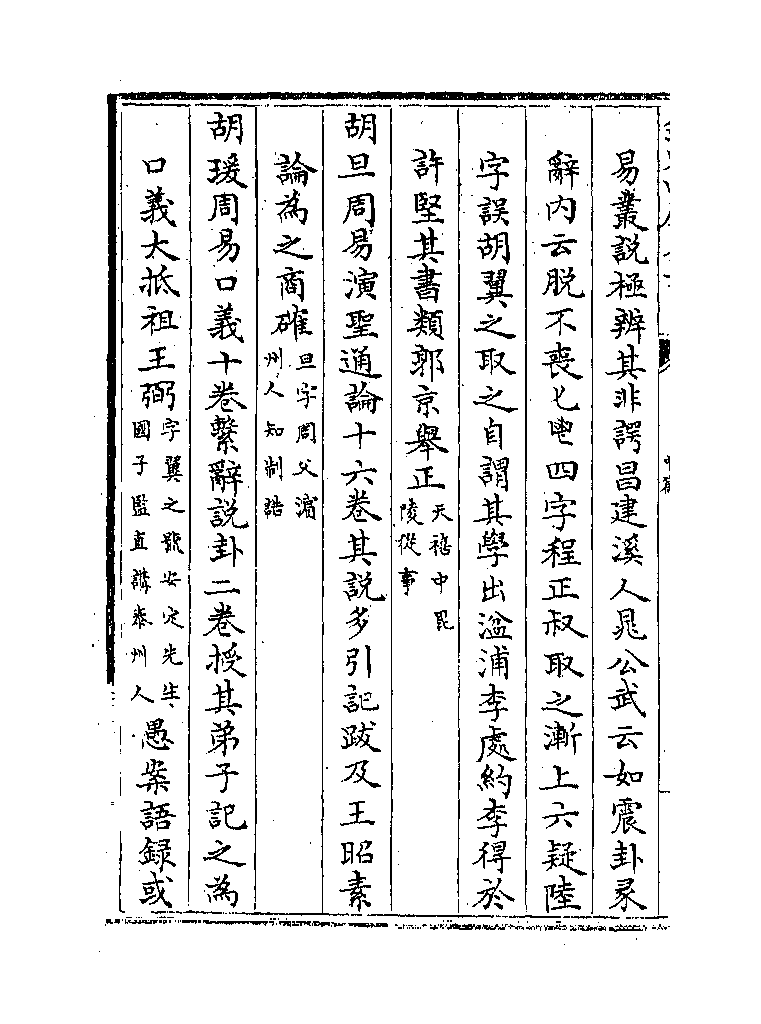 易叢說極辨其非諤昌建溪人晁公武云如震卦彖
辭内云脱不喪匕鬯四字程正叔取之漸上六疑陸
字誤胡翼之取之自謂其學出湓浦李處約李得於
許堅其書類郭京舉正天禧中毘陵從事
胡旦周易演聖通論十六卷其説多引記跋及王昭素
論為之商確旦字周父濵州人知制誥
胡瑗周易口義十卷繫辭説卦二卷授其弟子記之為
口義大抵祖王弼字翼之號安定先生國子監直講泰州人愚案語録或